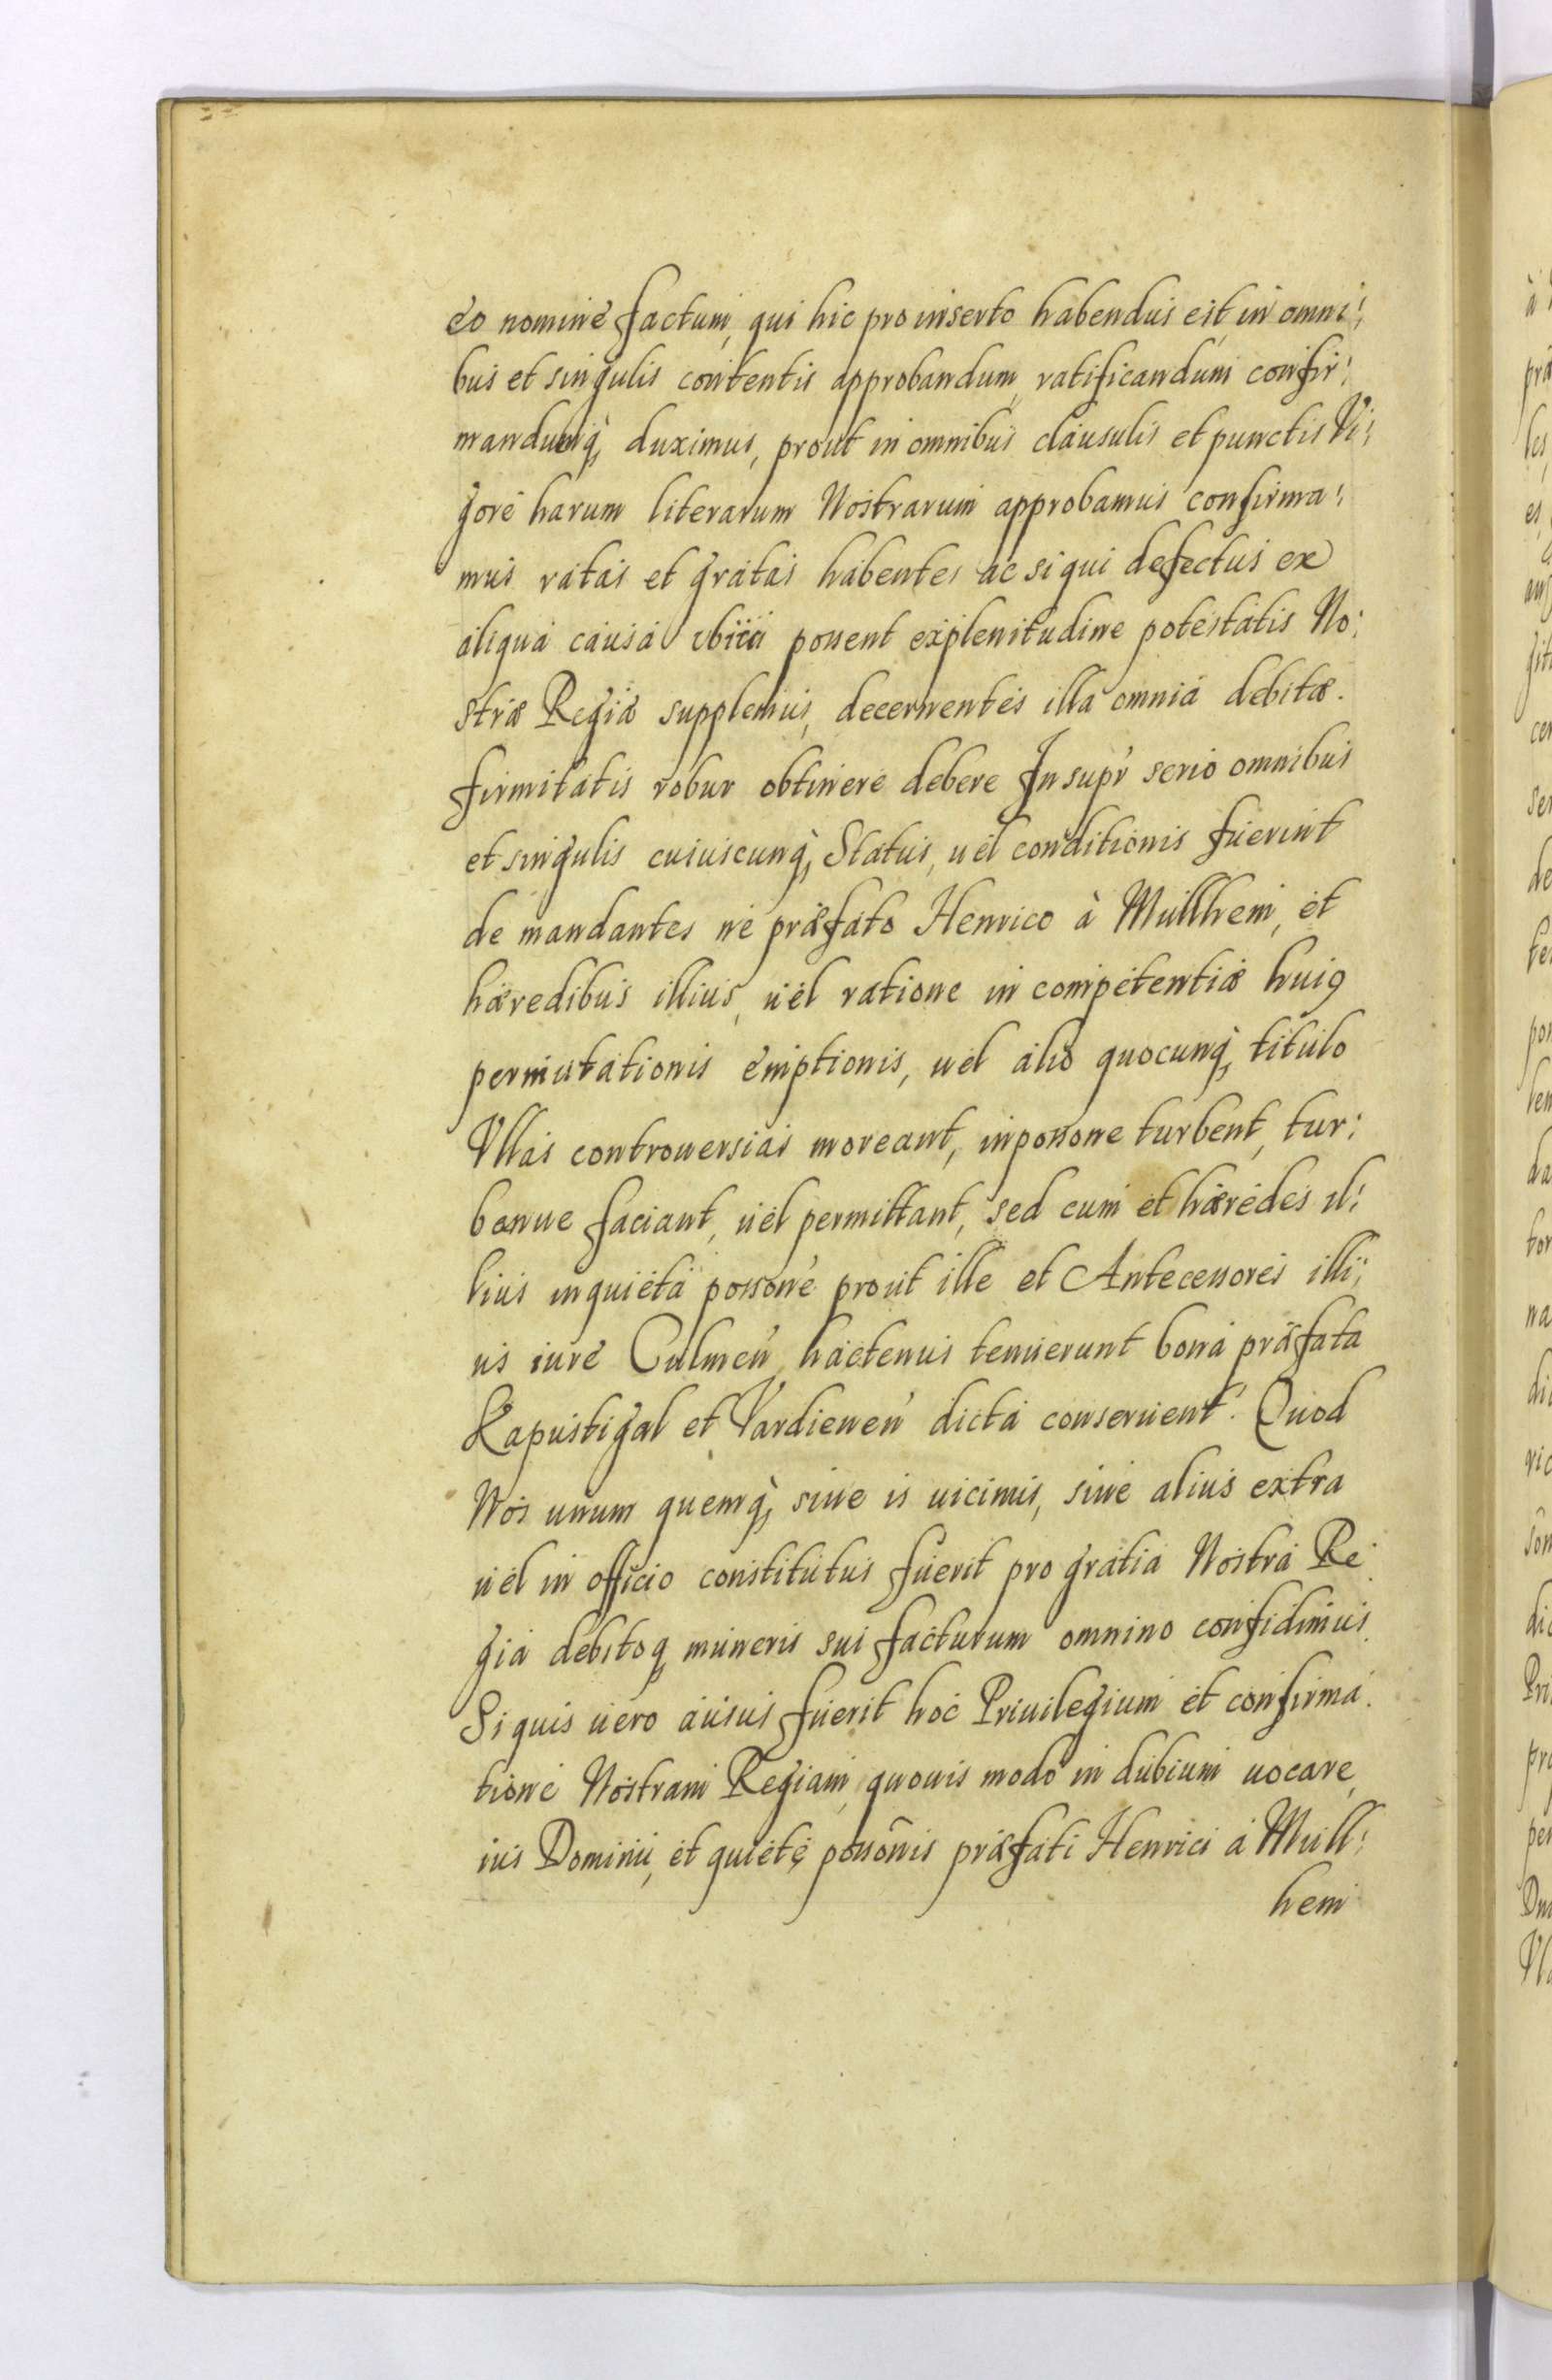 eo nomine factum, qui hic pro inserto habendus est in omni:
bus et singulis contentis approbandum, ratificandum confir:
mandumq, duximus, prout in omnibus clausulis et punctis Vi:
gore harum literarum Nostrarum approbamus confirma:
mus ratas et gratas habentes ac si qui defectus ex
aliqua causa possent explenitudine potestatis No:
stræ Regiæ supplemus, decernentes illa omnia debitæ.
firmitatis robur obtinere debere Insupr serio omnibus
et singulis cuiuscunq, Status, uel conditionis fuerint
de mandantes ne præfato Henrico à Mullhem, et
hæredibus illius, uel ratione in competentiæ hui9
permutationis emptionis, uel alio quocunq, titulo
Vllas controuersias moveant, in possone turbent, tur:
benue faciant, uel permittant, sed eum et hæredes il:
lius in quieta possone prout ille et Antecessores illi:
us iure Culmen, hactenus tenuerunt bona præfata
Kapustigal et Vardienen dicta conseruent. Quod
Nos unum quemq, siue is uicinus, siue alius extra
uel in officio constitutus fuerit pro gratia Nostra Re:
gia debitoq muneris sui facturum omnino confidimus.
Si quis uero ausus fuerit hoc Priuilegium et confirma:
tione Nostram Regiam, quouis modo in dubium uocare,
ius Dominii, et quietę possonis præfati Henrici à Mull:
hem